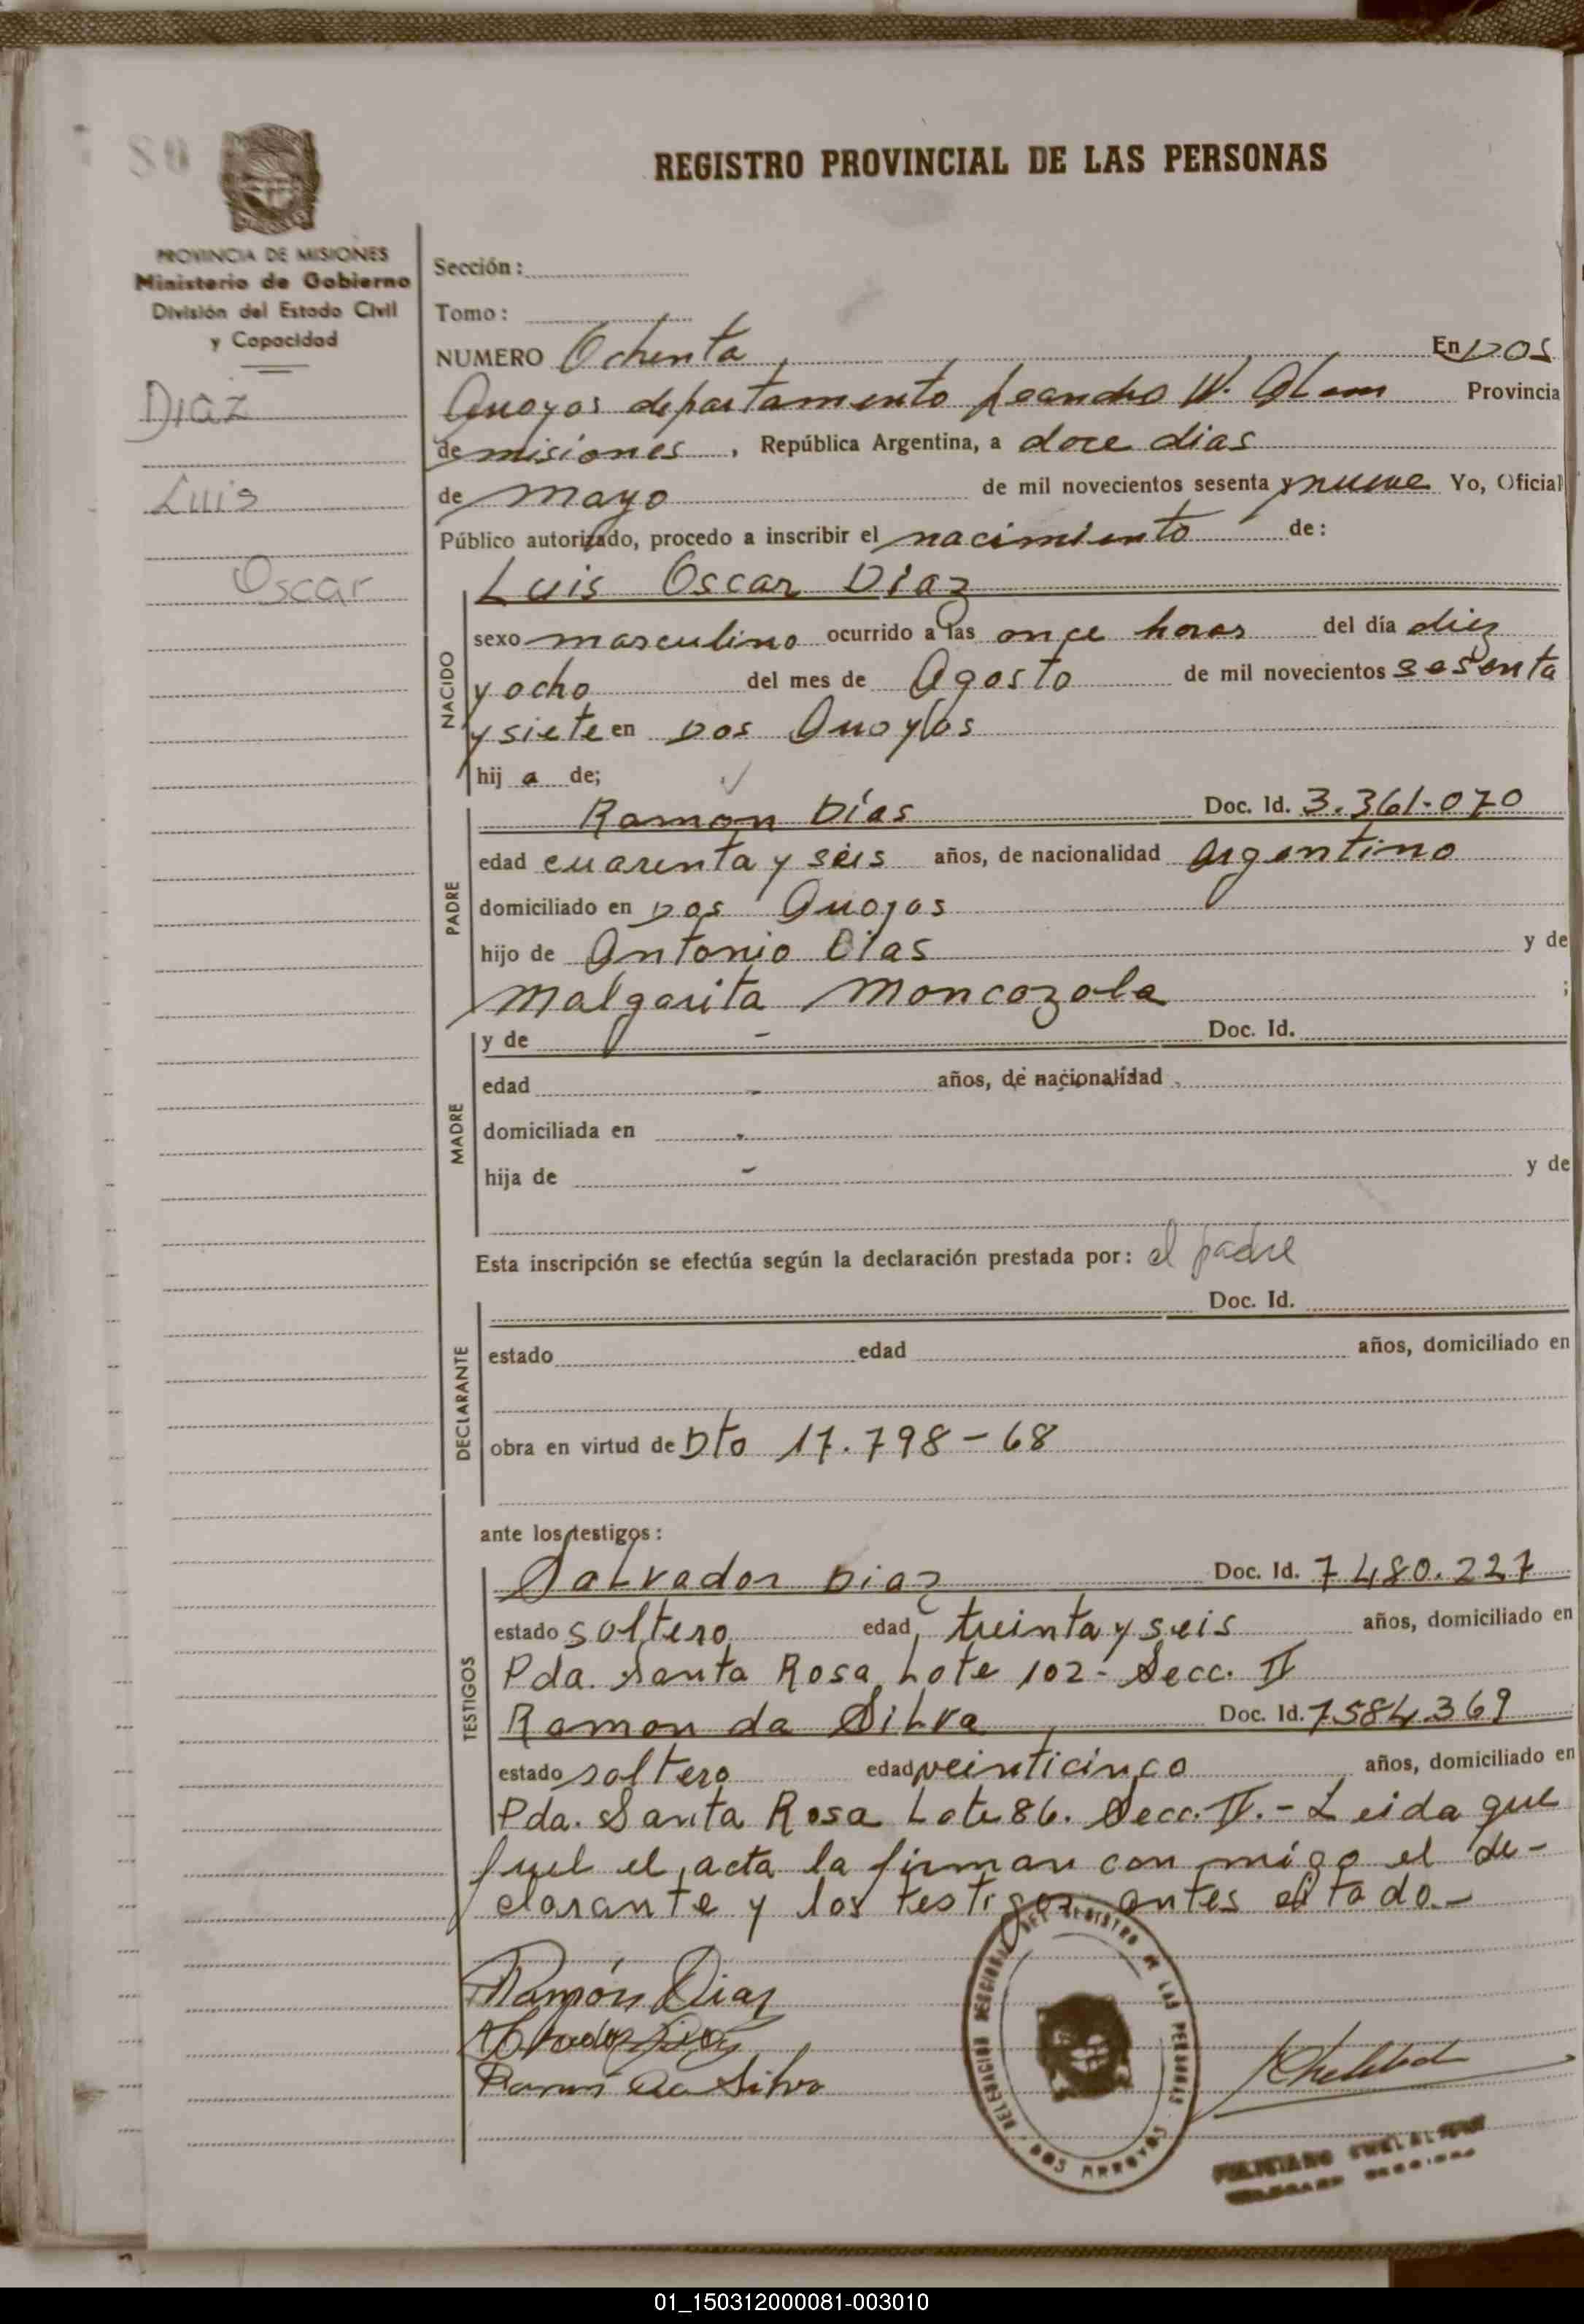 80
REGISTRO PROVINCIAL DE LAS PERSONAS
PROVINCIA DE MISIONES
Ministerio de Gobierno
División del Estado Civil
y Capacidad
Diaz
Luis
Oscar
Sección:
Tomo:
NUMERO Ochenta En Dos
Arroyos departamento Leandro N. Alem Provincia
de misiones, República Argentina, a doce dias
de mayo de mil novecientos sesenta y nueve Yo, Oficial
Público autorizado, procedo a inscribir el nacimiento de:
NACIDO
Luis Oscar Diaz
sexo masculino ocurrido a las once horas del día diez
y ocho del mes de Agosto de mil novecientos sesenta
y siete en Dos Arroyos
hij a de;
PADRE
Ramon Días Doc. Id. 3.361.070
edad cuarenta y seis años, de nacionalidad argentino
domiciliado en Dos Arroyos
hijo de Antonio Dias y de
Malgarita Moncozola ;
MADRE
y de - Doc. Id.
edad - años, de nacionalidad
domiciliada en -
hija de - y de
Esta inscripción se efectúa según la declaración prestada por: el padre
DECLARANTE
Doc. Id.
estado edad años, domiciliado en
obra en virtud de Dto 17.798-68
ante los testigos:
TESTIGOS
Salvador Diaz Doc. Id. 7480.227
estado soltero edad treinta y seis años, domiciliado en
Pda. Santa Rosa Lote 102- Secc. II
Ramon da Silva Doc. Id. 7584.369
estado soltero edad veinticinco años, domiciliado en
Pda. Santa Rosa Lote 86. Secc. II.- Leida que
fuel el acta la firman con migo el de-
clarante y los testigos antes citado.-
Ramón Diaz
Ramon da Silva
DELEGACION SECCIONAL DEL REGISTRO DE LAS PERSONAS
DOS ARROYOS
01_150312000081-003010